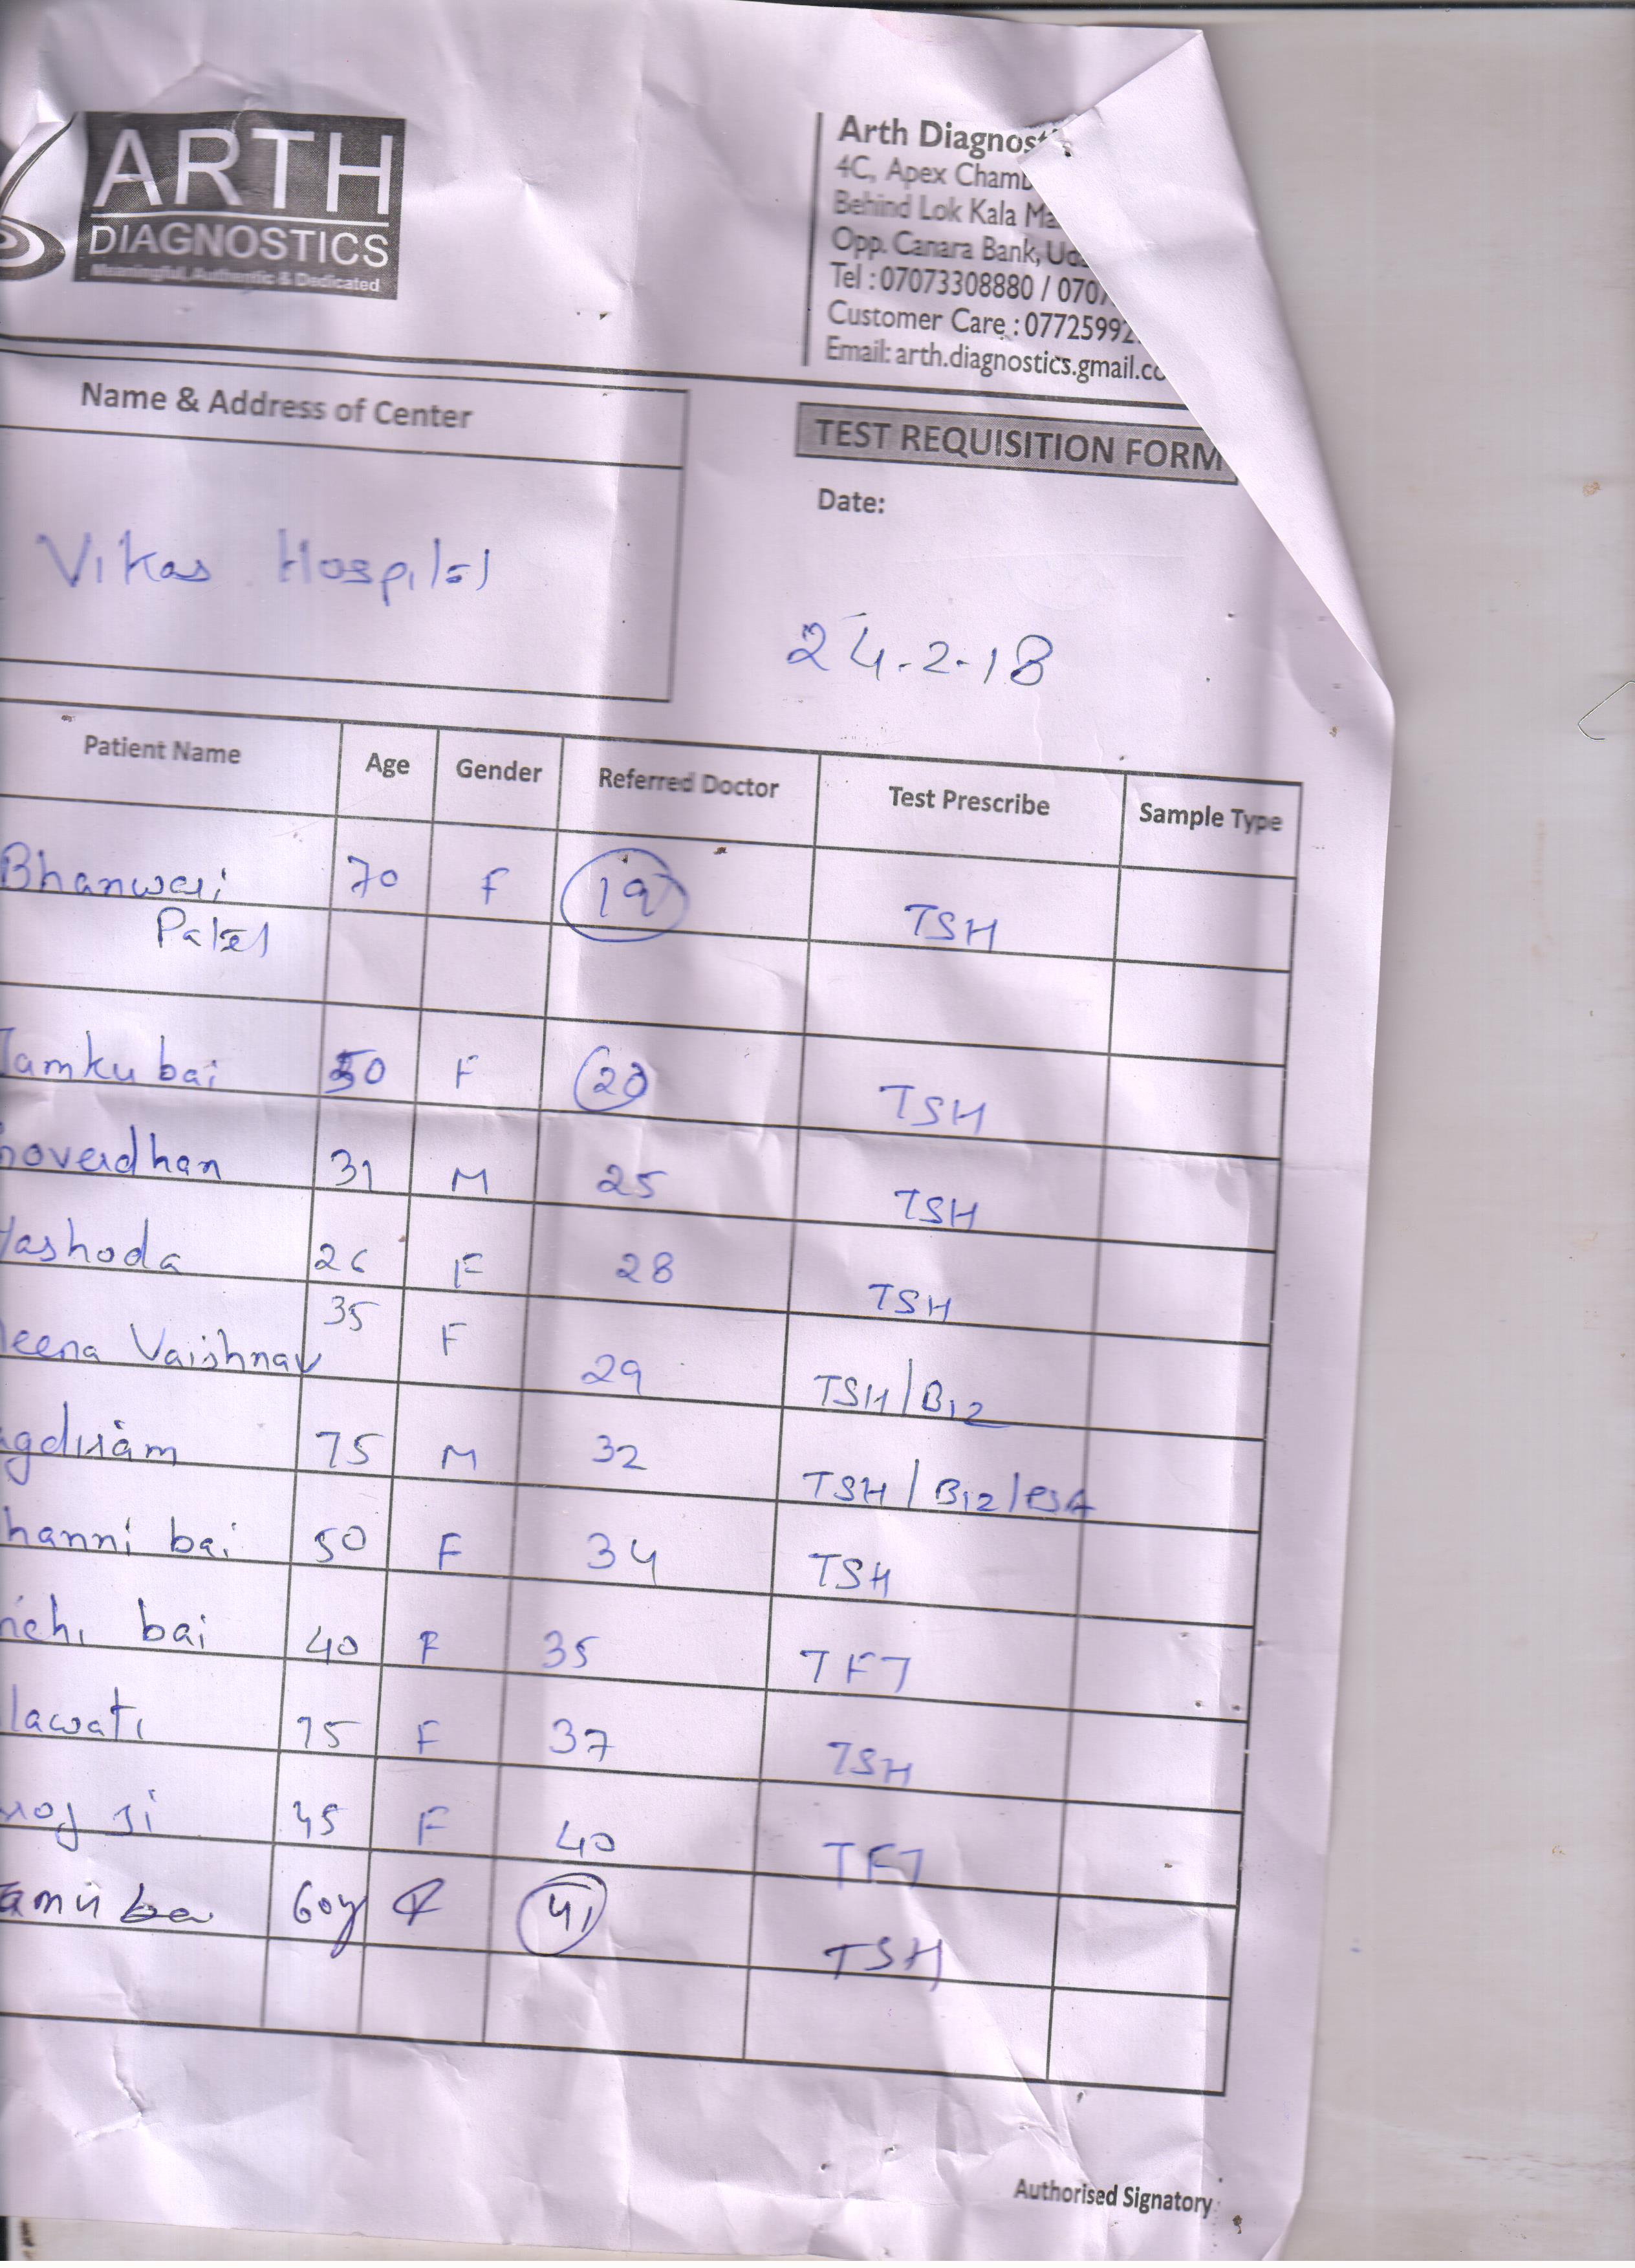 ARTH
DIAGNOSTICS
Meaningful, Authentic & Dedicated
Arth Diagnost
4C, Apex Chamb
Behind Lok Kala Ma
Opp. Canara Bank, Uda
Tel : 07073308880 / 0707
Customer Care : 07725992
Email: arth.diagnostics.gmail.co
Name & Address of Center
TEST REQUISITION FORM
Date:
Vikas Hospital
24.2.18
Patient Name Age Gender Referred Doctor Test Prescribe Sample Type
Bhanwari 70 F 19 TSH
Patel
Jamku bai 50 F 20 TSH
overdhan 31 M 25 TSH
Yashoda 26 F 28 TSH
eena Vaishnav 35 F 29 TSH/B12
gdiram 75 M 32 TSH/B12/PSA
hanni bai 50 F 34 TSH
bai 40 F 35 TFT
lawati 75 F 37 TSH
roj ji 45 F 40 TFT
60y F 41 TSH
Authorised Signatory